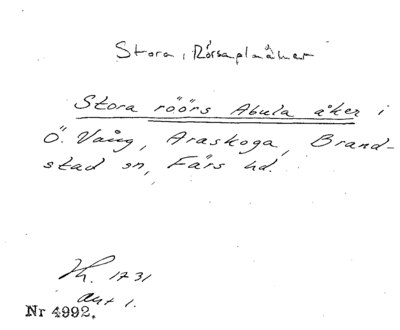 Stora, Rörsaplaåker
Stora röörs Abula åker i
Ö. Vång, Araskoga, Brand-
stad sn, Färs hd.
Lh. 1731
akt 1.
Nr 4992.